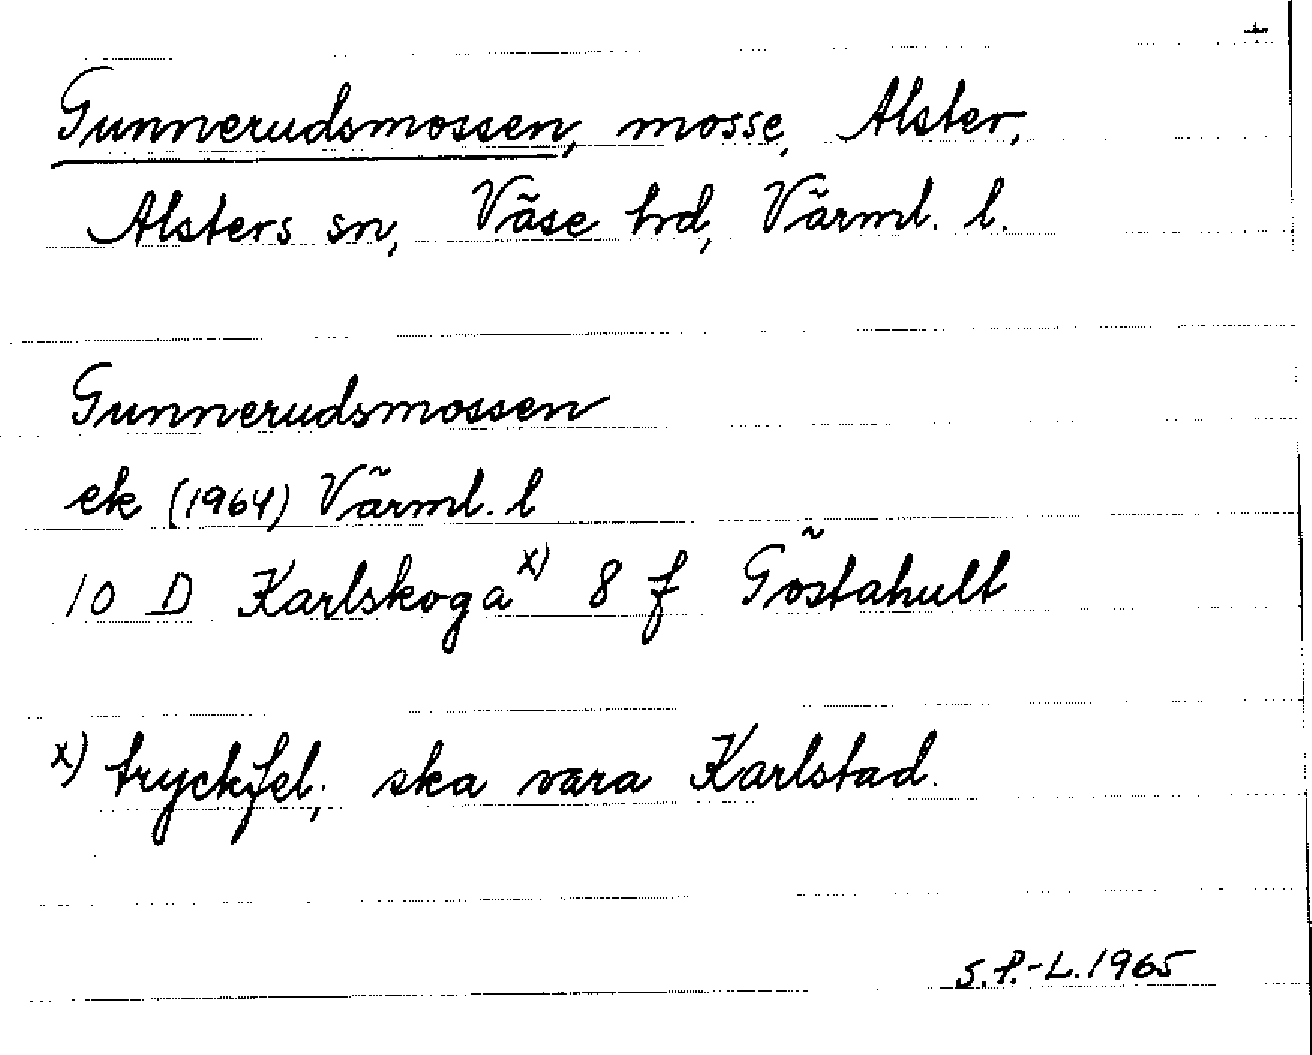 Gunnerudsmossen, mosse, Alster,
Alsters sn, Väse hd, Värml. l.
Gunnerudsmossen
ek (1964) Värml. l
10 D Karlskoga x) 8 f Göstahult
x) tryckfel; ska vara Karlstad.
S.P.-L. 1965